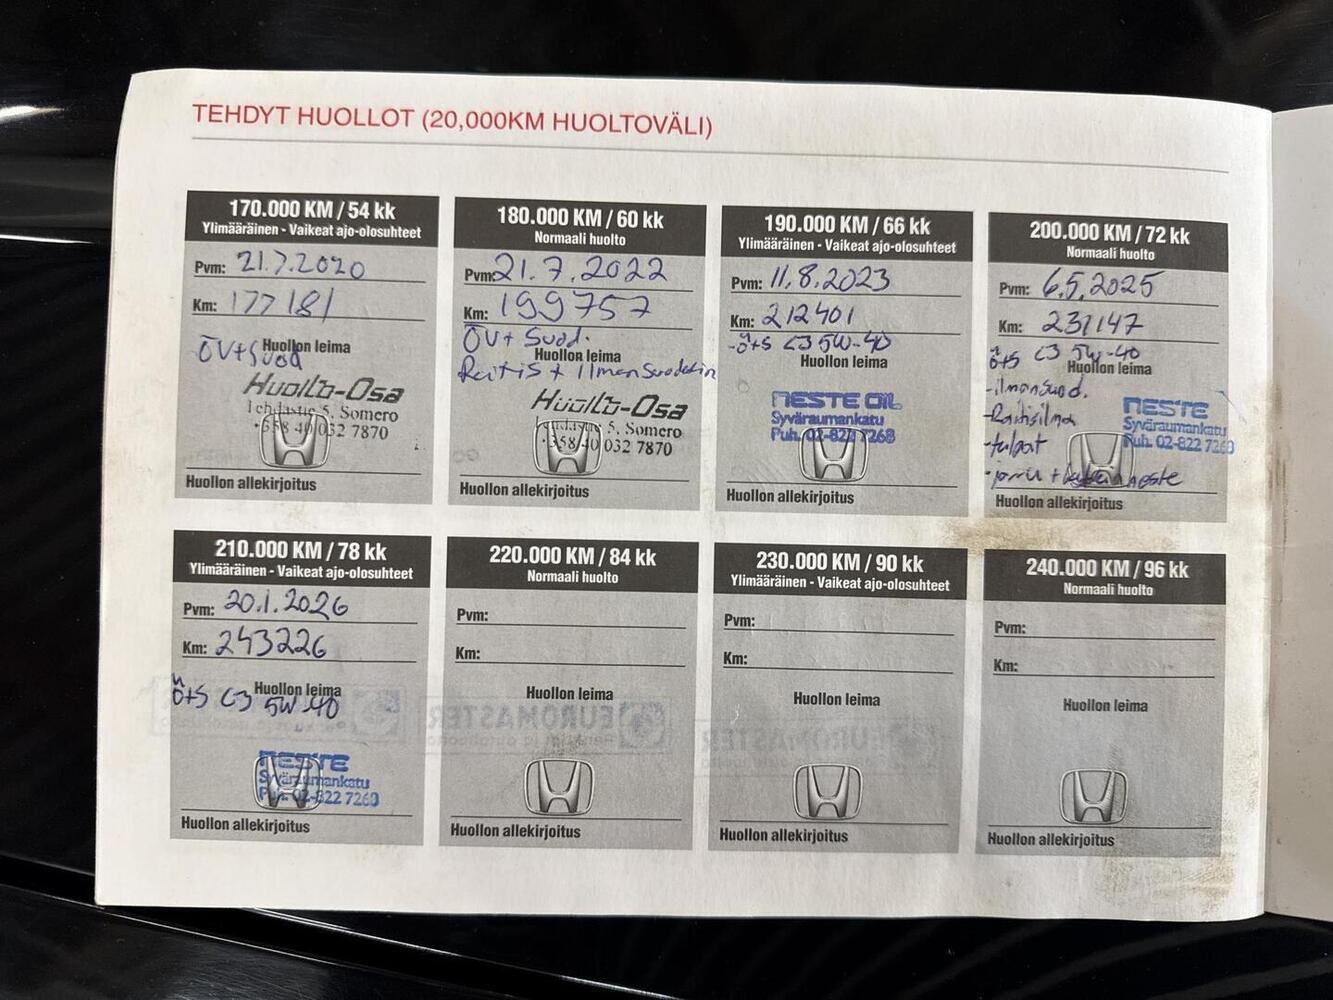 TEHDYT HUOLLOT (20,000KM HUOLTOVÄLI)
170.000 KM / 54 kk
Ylimääräinen - Vaikeat ajo-olosuhteet
Pvm: 21.7.2020
Km: 177181
Huollon leima
ÖV+Suod
Huolto-Osa
Tehdastie 5, Somero
+358 40 032 7870
Huollon allekirjoitus
180.000 KM / 60 kk
Normaali huolto
Pvm: 21.7.2022
Km: 199757
ÖV+ Suod.
Huollon leima
Raitis + Ilmansuodatin
Huolto-Osa
Tehdastie 5, Somero
+358 40 032 7870
Huollon allekirjoitus
190.000 KM / 66 kk
Ylimääräinen - Vaikeat ajo-olosuhteet
Pvm: 11.8.2023
Km: 212401
-Ö+S C3 5W-40
Huollon leima
NESTE OIL
Syväraumankatu
Puh. 02-822 7268
Huollon allekirjoitus
200.000 KM / 72 kk
Normaali huolto
Pvm: 6.5.2025
Km: 231147
Ö+S C3 5W-40
Huollon leima
-ilmansuod.
-Raitisilma
-tulpat
-jarru + neste
NESTE
Syväraumankatu
Puh. 02-822 7268
Huollon allekirjoitus
210.000 KM / 78 kk
Ylimääräinen - Vaikeat ajo-olosuhteet
Pvm: 20.1.2026
Km: 243226
Huollon leima
Ö+S C3 5W-40
NESTE
Syväraumankatu
Puh. 02-822 7268
Huollon allekirjoitus
220.000 KM / 84 kk
Normaali huolto
Pvm:
Km:
Huollon leima
EUROMASTER
Huollon allekirjoitus
230.000 KM / 90 kk
Ylimääräinen - Vaikeat ajo-olosuhteet
Pvm:
Km:
Huollon leima
EUROMASTER
Huollon allekirjoitus
240.000 KM / 96 kk
Normaali huolto
Pvm:
Km:
Huollon leima
Huollon allekirjoitus